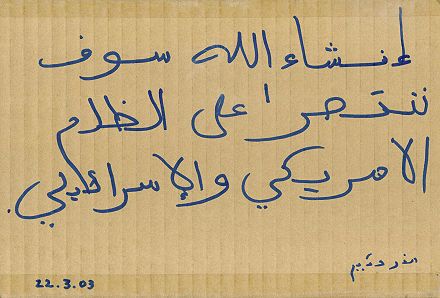 إنشاء الله سوف
ننتصرا على الظلم
الامريكي والإسرائيلي.
22.3.03